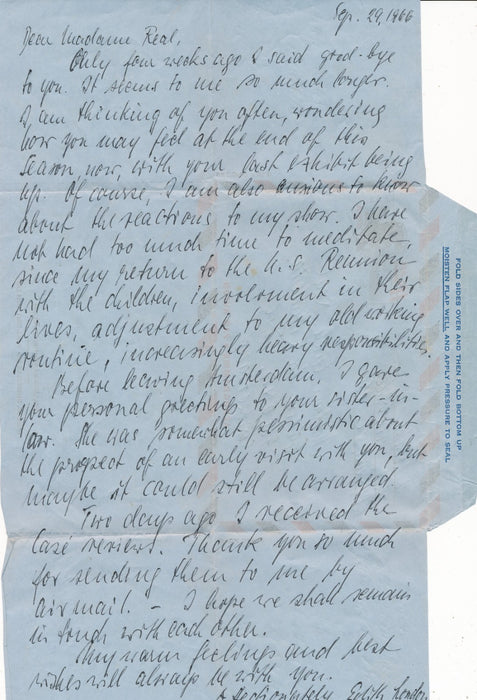 Sep. 29, 1966
Dear Madame Real,
Only four weeks ago I said good-bye
to you. It seems to me so much longer.
I am thinking of you often, wondering
how you may feel at the end of this
season, now, with your last exhibit being
up. Of course, I am also anxious to know
about the reactions to my show. I have
not had too much time to meditate,
since my return to the U.S. Reunion
with the children, involvment in their
lives, adjustment to my old working
routine, increasingly heavy responsibilities.
Before leaving Amsterdam, I gave
your personal greetings to your sister-in-
law. She was somewhat pessimistic about
the prospect of an early visit with you, but
maybe it could still be arranged.
Two days ago I received the
Casé reviews. Thank you so much
for sending them to me by
airmail. – I hope we shall remain
in touch with each other.
My warm feelings and best
wishes will always be with you.
Affectionately, Edith London
FOLD SIDES OVER AND THEN FOLD BOTTOM UP
MOISTEN FLAP WELL AND APPLY PRESSURE TO SEAL